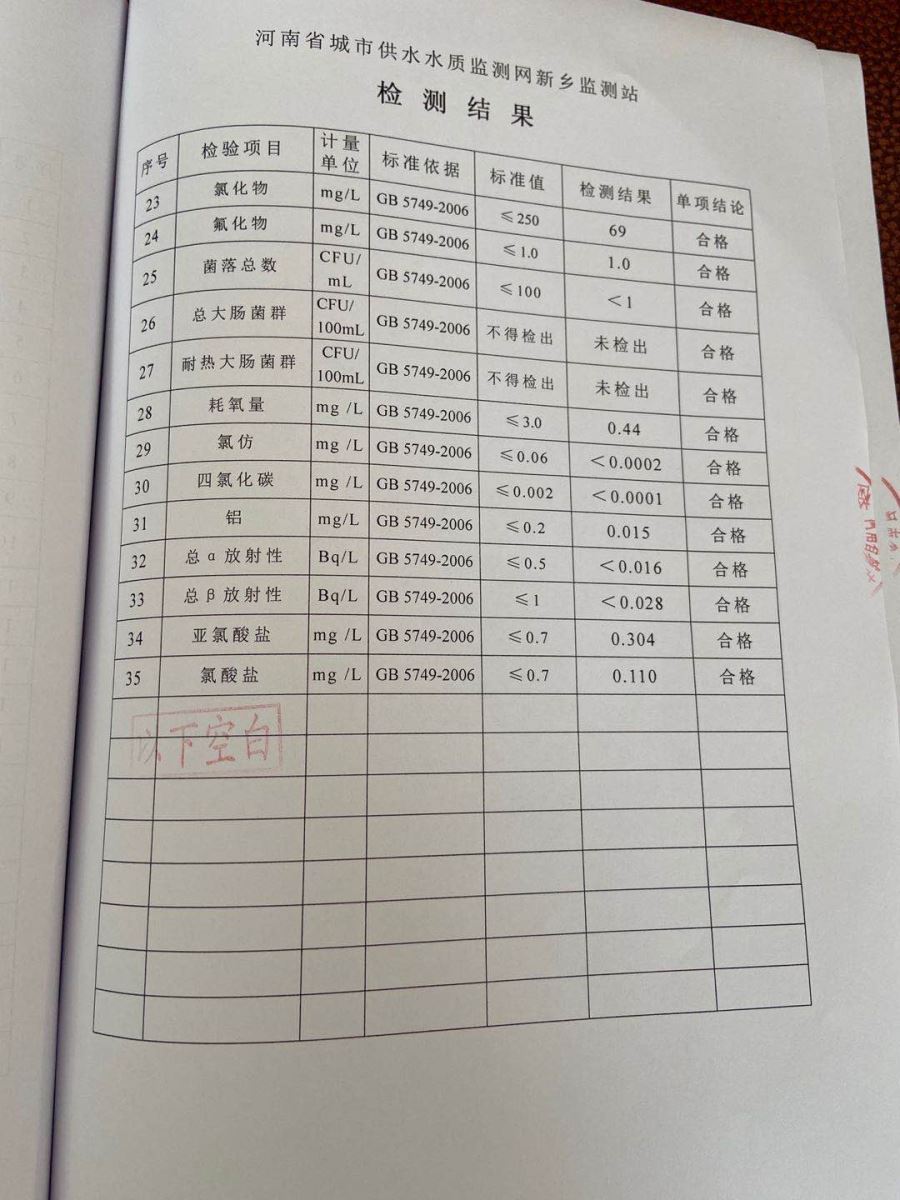 河南省城市供水水质监测网新乡监测站
检测结果
序号 检验项目 计量单位 标准依据 标准值 检测结果 单项结论
23 氯化物 mg/L GB 5749-2006 ≤250 69 合格
24 氟化物 mg/L GB 5749-2006 ≤1.0 1.0 合格
25 菌落总数 CFU/mL GB 5749-2006 ≤100 <1 合格
26 总大肠菌群 CFU/100mL GB 5749-2006 不得检出 未检出 合格
27 耐热大肠菌群 CFU/100mL GB 5749-2006 不得检出 未检出 合格
28 耗氧量 mg /L GB 5749-2006 ≤3.0 0.44 合格
29 氯仿 mg /L GB 5749-2006 ≤0.06 <0.0002 合格
30 四氯化碳 mg /L GB 5749-2006 ≤0.002 <0.0001 合格
31 铝 mg/L GB 5749-2006 ≤0.2 0.015 合格
32 总α放射性 Bq/L GB 5749-2006 ≤0.5 <0.016 合格
33 总β放射性 Bq/L GB 5749-2006 ≤1 <0.028 合格
34 亚氯酸盐 mg /L GB 5749-2006 ≤0.7 0.304 合格
35 氯酸盐 mg /L GB 5749-2006 ≤0.7 0.110 合格
以下空白